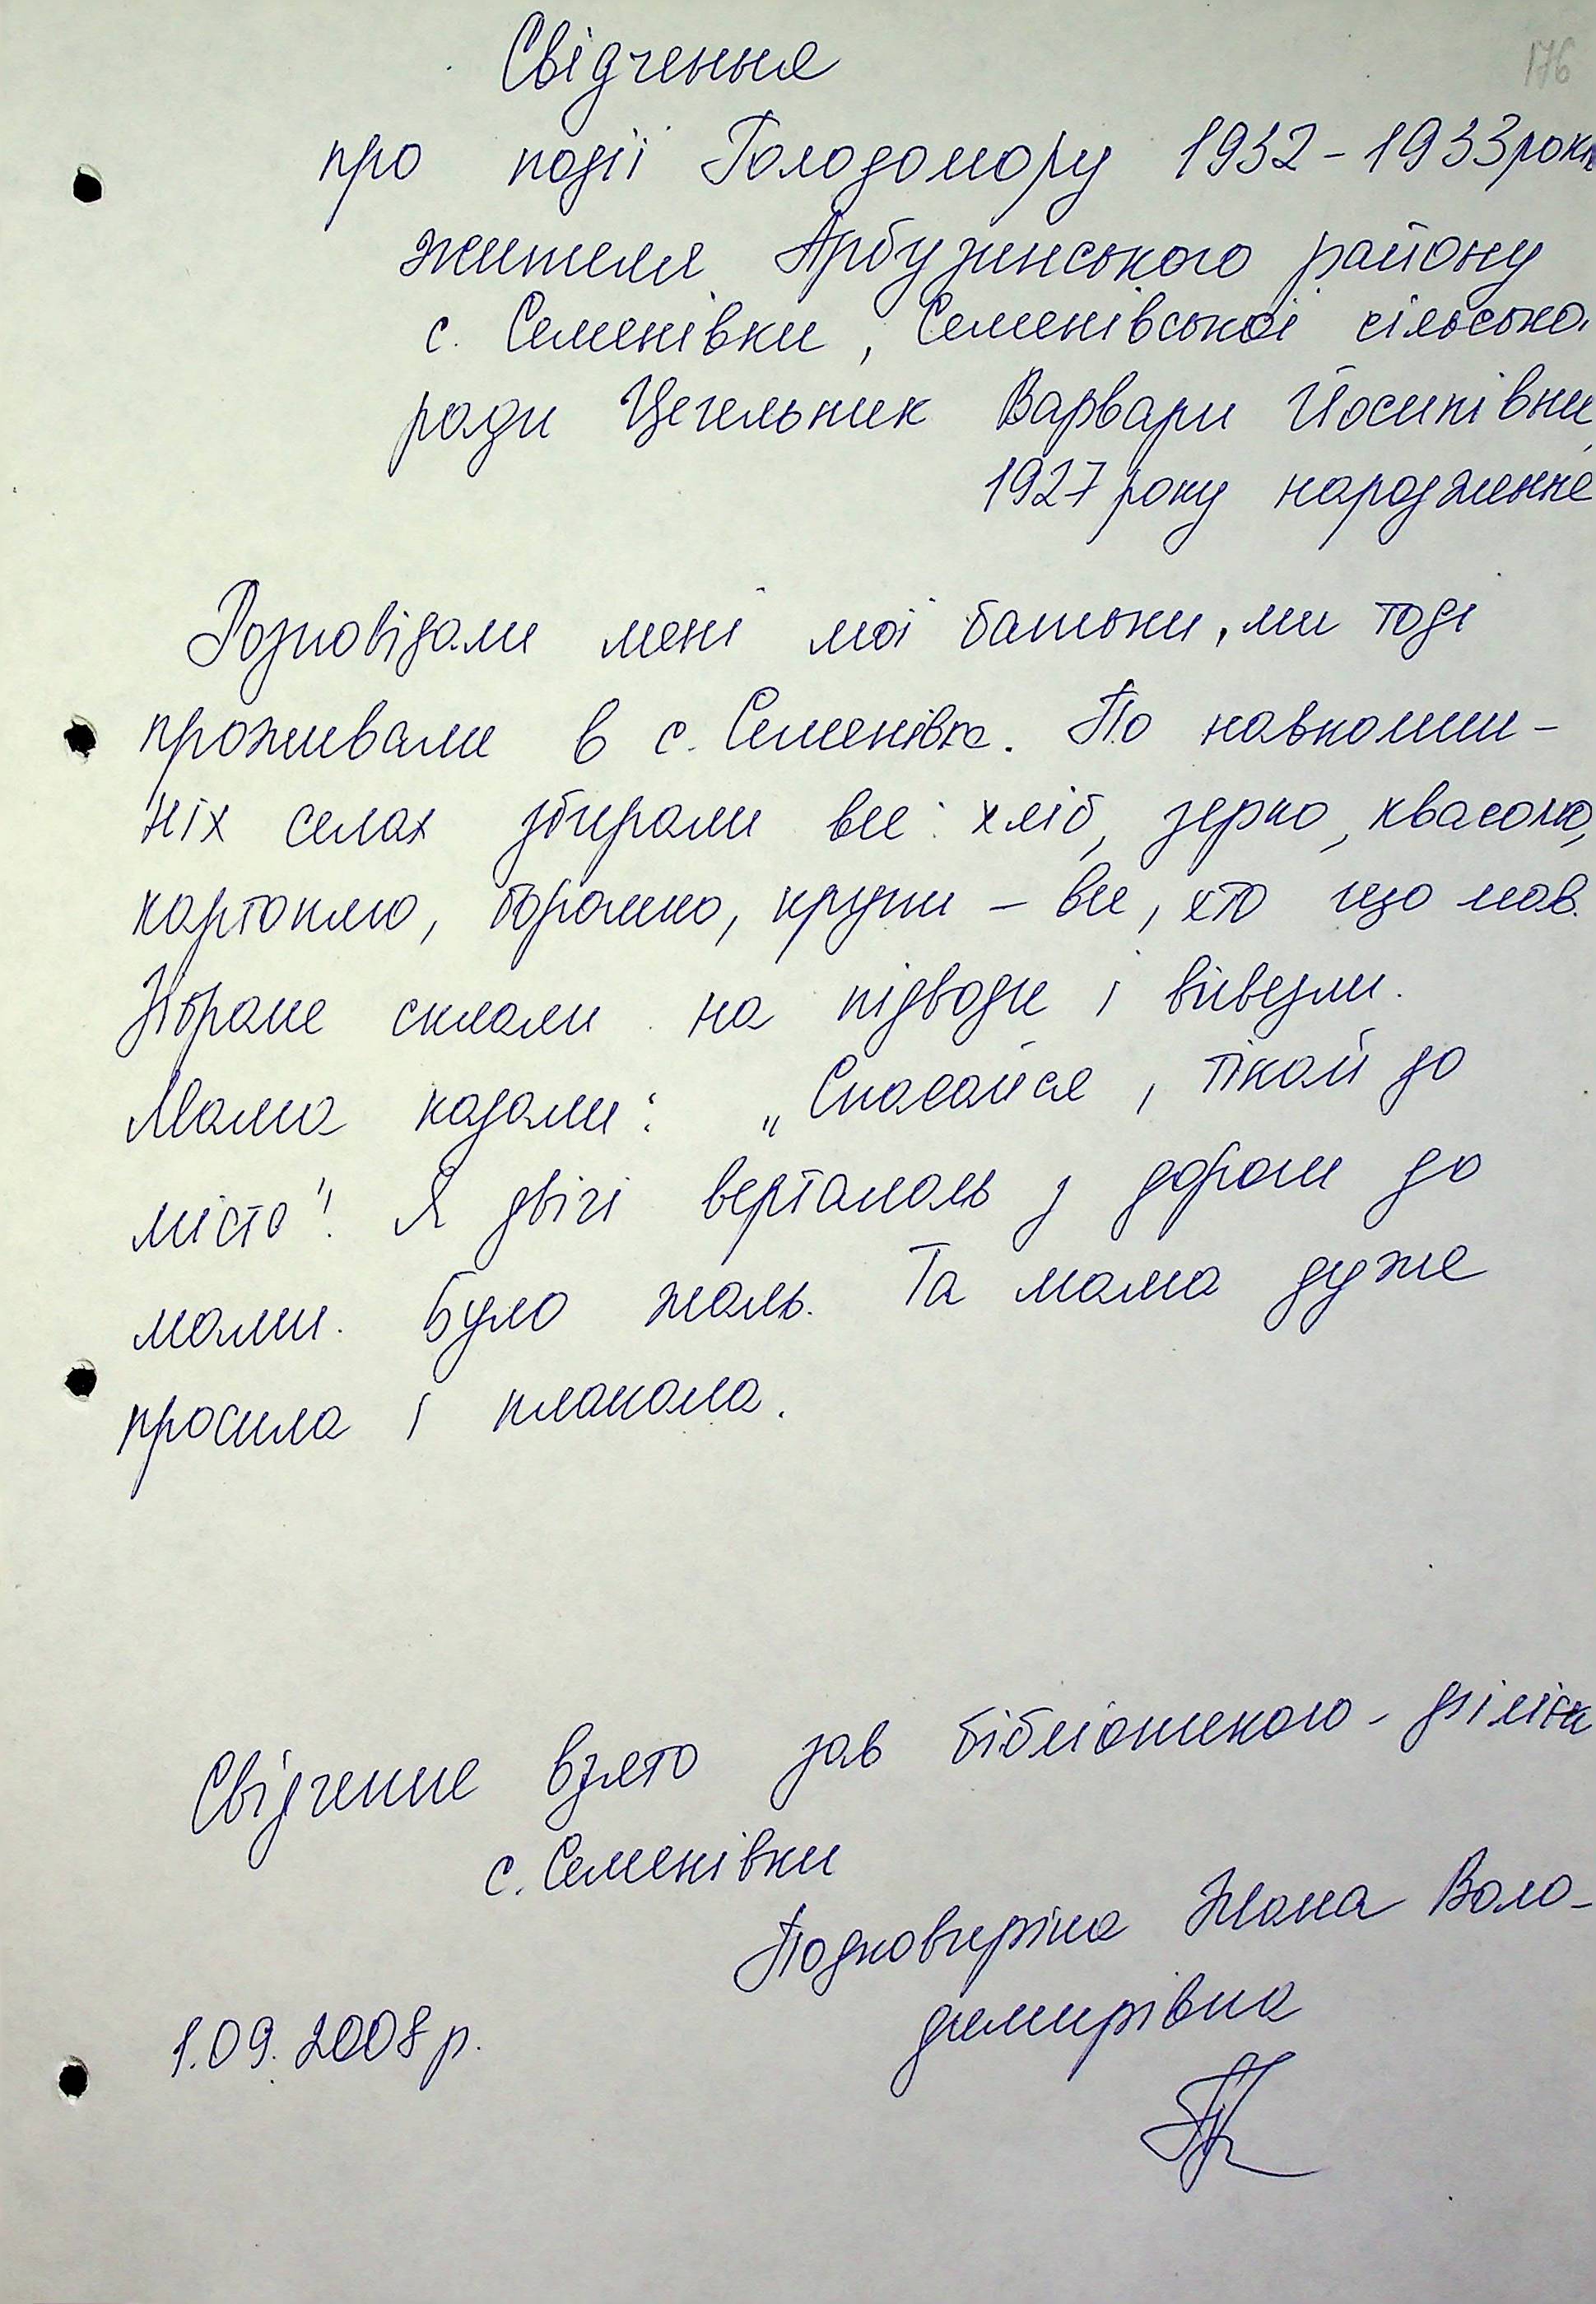 176
Свідчення
про події Голодомору 1932-1933 роки
жителя Арбузинського району
с. Семенівки, Семенівської сільсько
ради Цегельник Варвари Йосипівни
1927 року народження
Розповідали мені мої батьки, ми тоді
проживали в с. Семенівка. По навколиш-
ніх селах збирали все: хліб, зерно, квасолю,
картоплю, борошно, крупи – все, хто що мав.
Зібране склали на підводи і вивезли.
Мама казали: „Спасайся, тікай до
міста"! Я двічі верталась з дороги до
мами. Було жаль. Та мама дуже
просила і плакала.
Свідчення взято зав бібліотекою-філією
с. Семенівки
Жана Воло-
димирівна
1.09.2008 р.